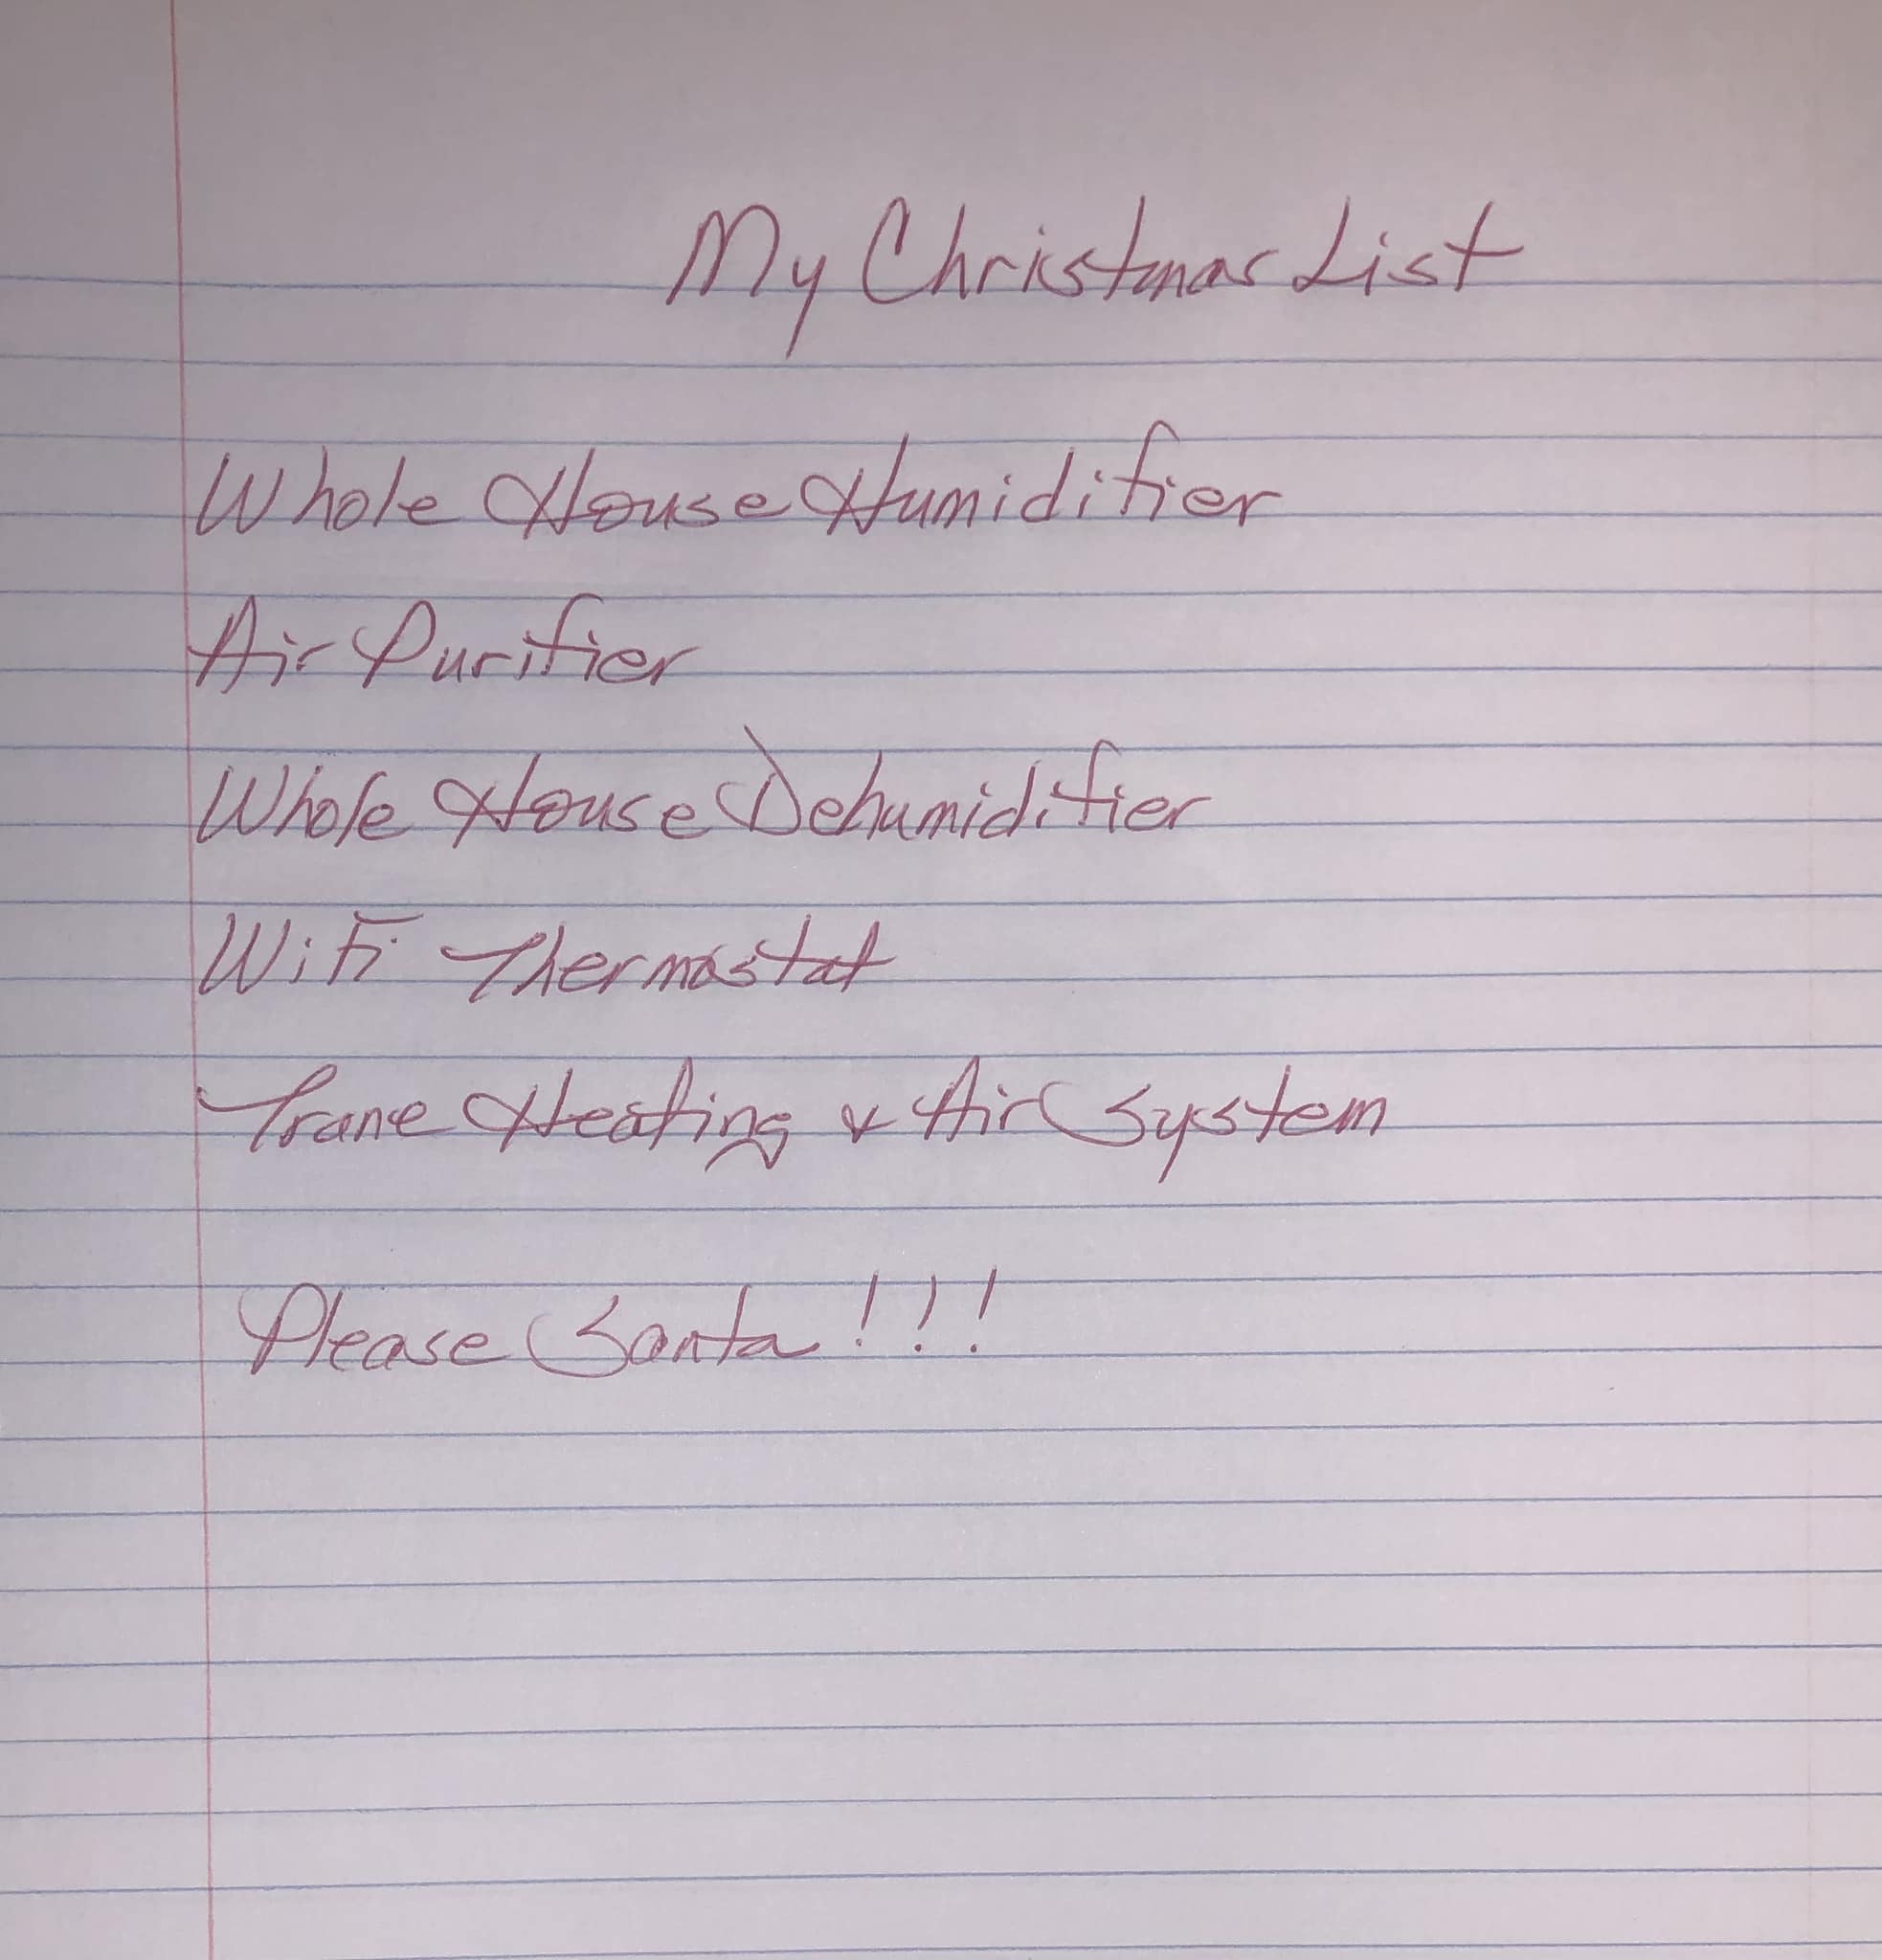 My Christmas List
Whole House Humidifier
Air Purifier
Whole House Dehumidifier
WiFi Thermostat
Trane Heating & Air System
Please Santa!!!